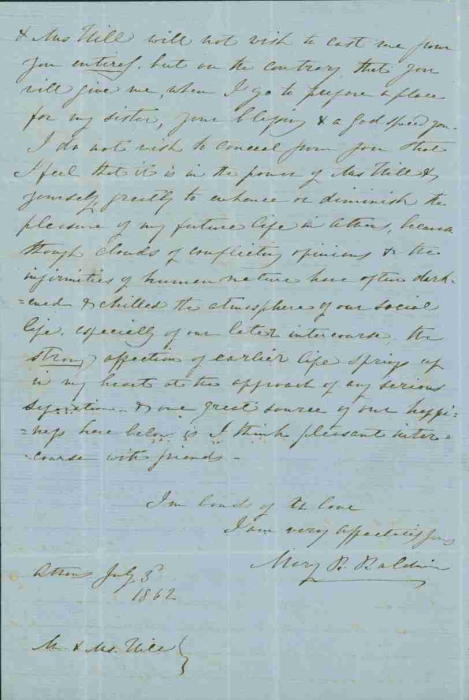 & Mrs Hill will not wish to cast me from
you entirely, but on the contrary, that you
will give me, when I go to prepare a place
for my sister, your blessing & a God speed you.
I do not wish to conceal from you that
I feel that it is in the power of Mrs Hill &
yourself, greatly to enhance or diminish the
pleasure of my future life in Athens, because
though clouds of conflicting opinions & the
infirmities of human nature have often dark-
=ened & chilled the atmosphere of our social
life, especially of our later intercourse, the
strong affection of earlier life springs up
in my heart at the approach of any serious
separation. & one great source of our happi-
=ness here below is I think pleasant inter-
=course with friends -
In bonds of love
I am very affectionately yours
Mary B. Baldwin
Athens July 3d
1862
Mr & Mrs. Hill